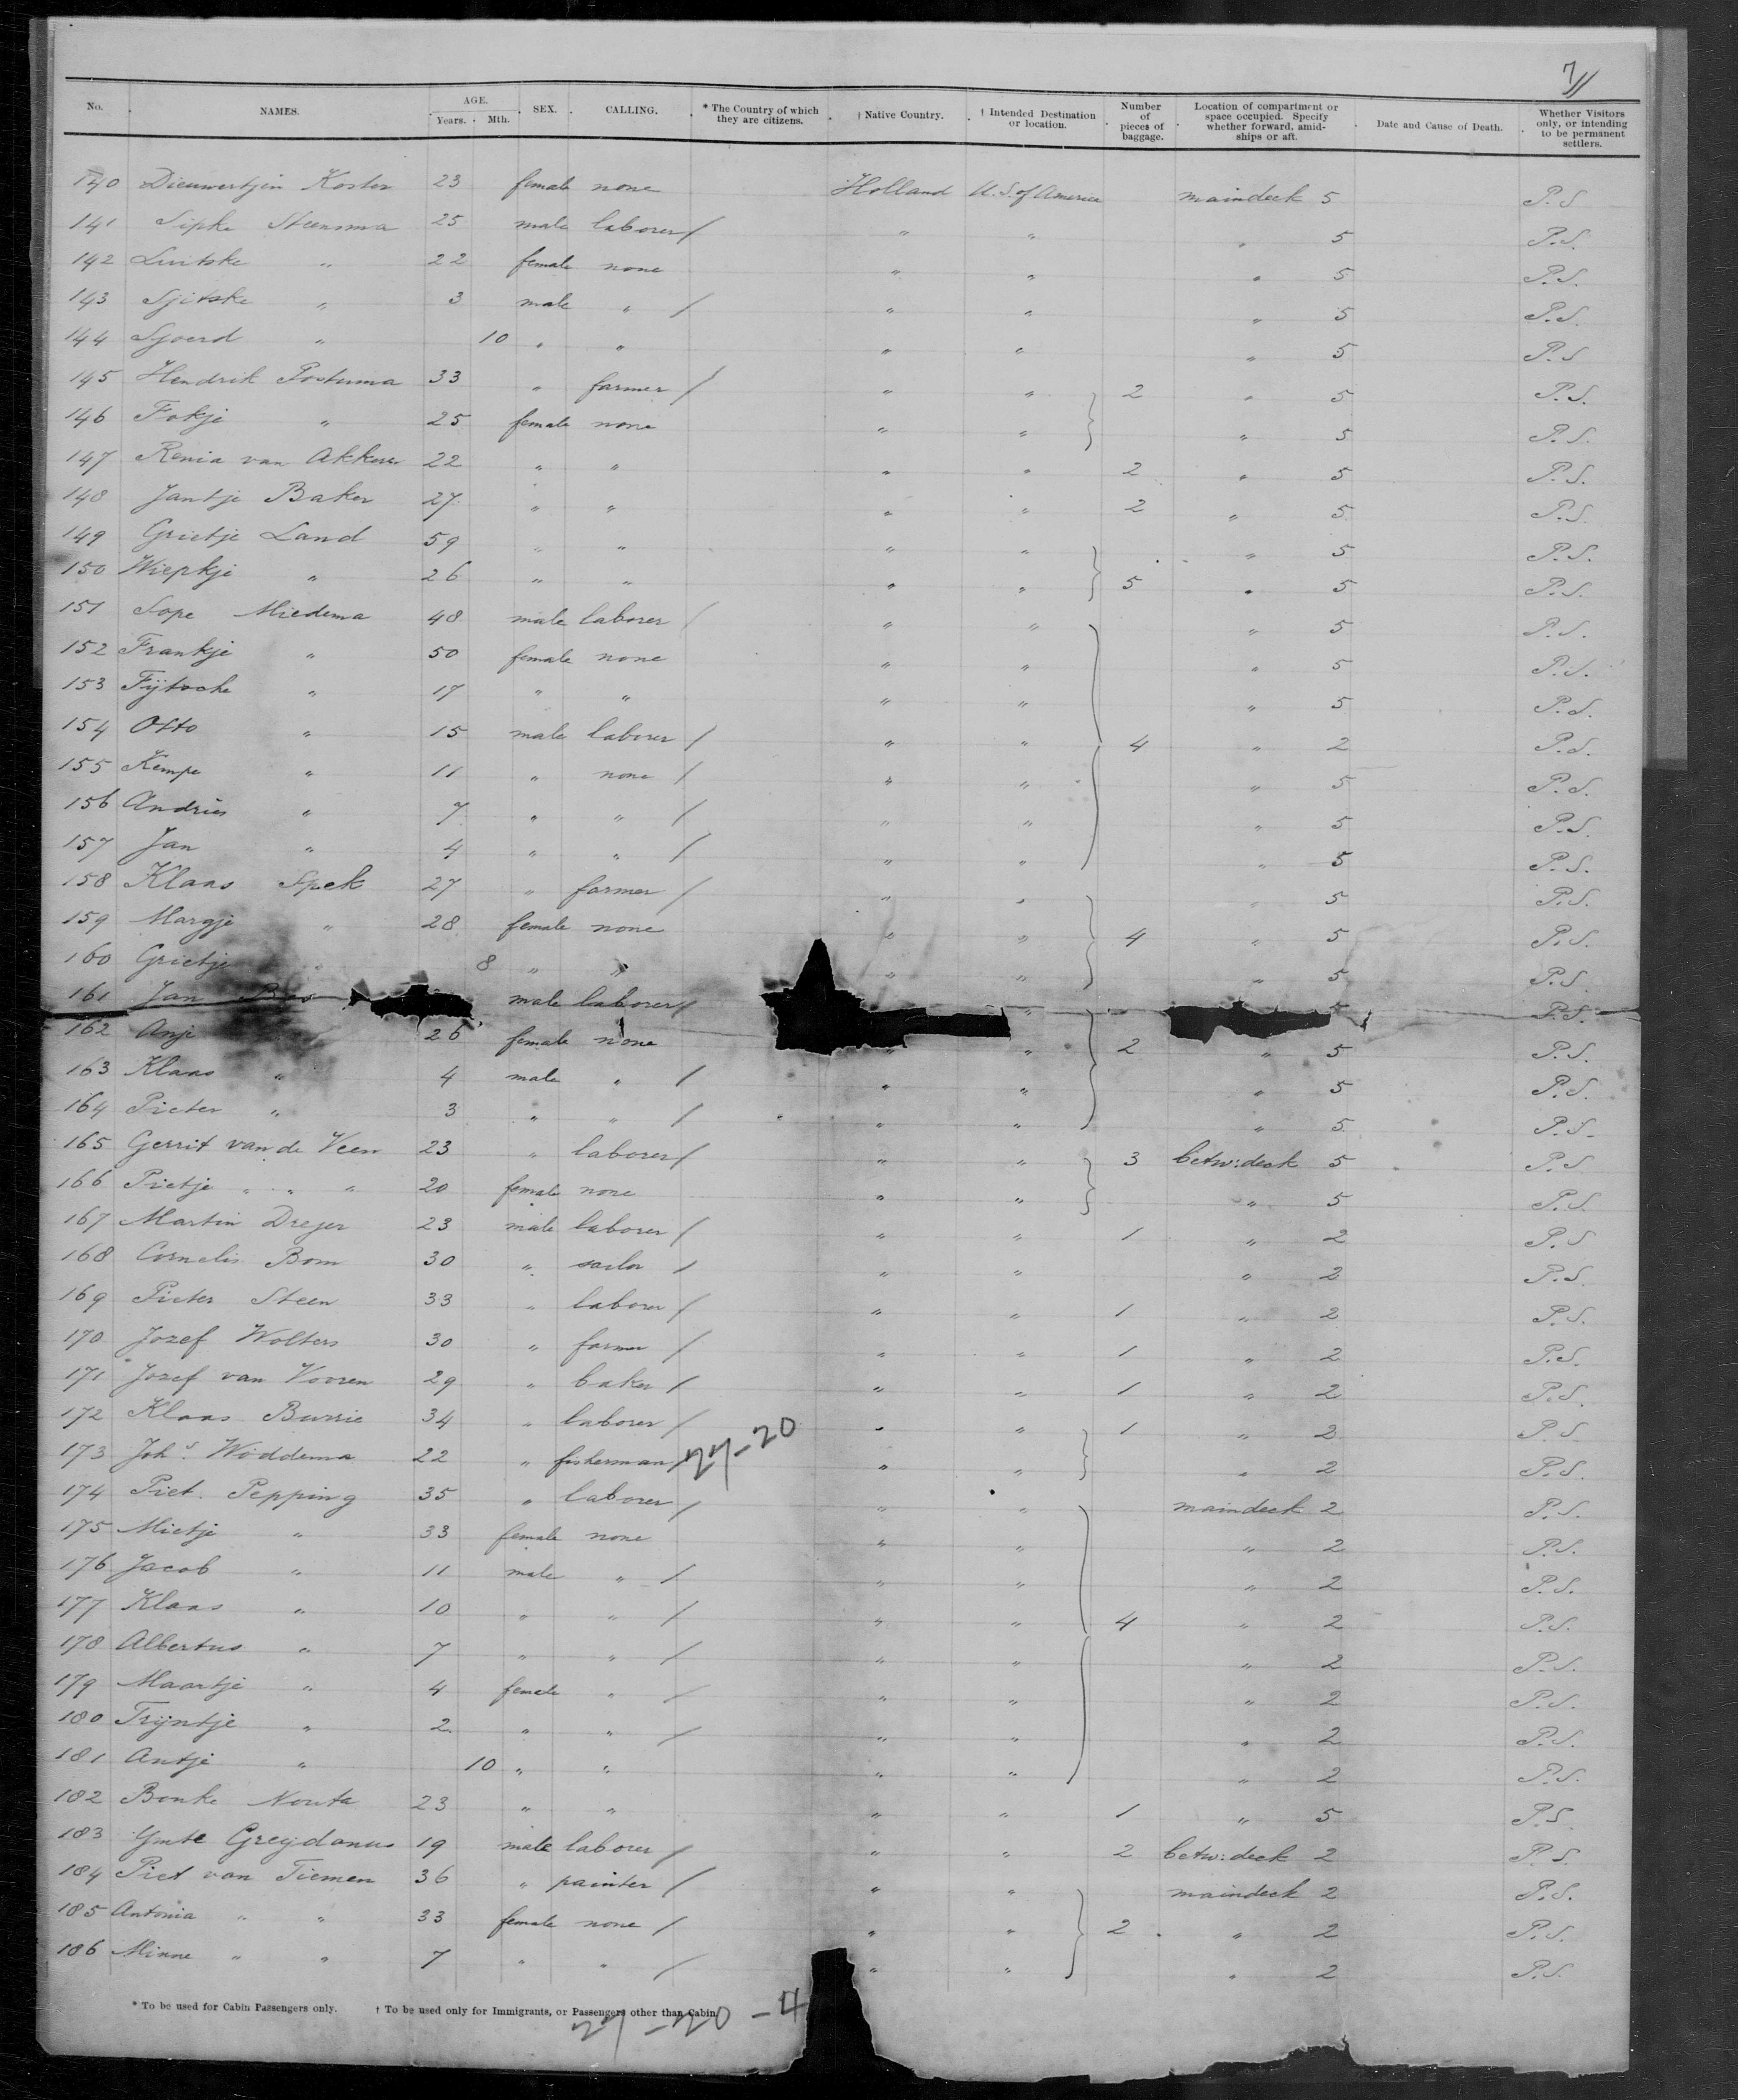 7//
No. NAMES. AGE. Years. Mth. SEX. CALLING. * The Country of which they are citizens. † Native Country. † Intended Destination or location. Number of pieces of baggage. Location of compartment or space occupied. Specify whether forward, amidships or aft. Date and Cause of Death. Whether Visitors only, or intending to be permanent settlers.
140 Dieuwertjen Koster 23 female none Holland U.S. of America maindeck 5 P.S
141 Sipke Steensma 25 male laborer / " " " 5 P.S.
142 Luitske " 22 female none " " " 5 P.S.
143 Sjitske " 3 male " / " " " 5 P.S.
144 Sjoerd " 10 " " " " " 5 P.S
145 Hendrik Postuma 33 " farmer / " " 2 " 5 P.S.
146 Fokje " 25 female none " " " 5 P.S.
147 Renia van Akker 22 " " " " 2 " 5 P.S.
148 Jantje Baker 27 " " " " 2 " 5 P.S.
149 Grietje Land 59 " " " " " 5 P.S.
150 Wiepkje " 26 " " " " 5 " 5 P.S.
151 Sope Miedema 48 male laborer / " " " 5 P.S.
152 Frankje " 50 female none " " " 5 P.S.
153 Fijtsche " 17 " " " " " 5 P.S.
154 Otto " 15 male laborer / " " 4 " 2 P.S.
155 Kempe " 11 " none / " " " 5 P.S.
156 Andries " 7 " " / " " " 5 P.S.
157 Jan " 4 " " / " " " 5 P.S.
158 Klaas Spek 27 " farmer / " " " 5 P.S.
159 Margje " 28 female none " " 4 " 5 P.S.
160 Grietje 8 " " " " " 5 P.S.
161 Jan male laborer / " 5 P.S.
162 Anje 26 female none " " 2 " 5 P.S.
163 Klaas " 4 male " / " " " 5 P.S.
164 Pieter " 3 " " / " " " 5 P.S.
165 Gerrit van de Veen 23 " laborer / " " 3 betw: deck 5 P.S
166 Pietje " " " 20 female none " " " 5 P.S.
167 Martin Dreyer 23 male laborer / " " 1 " 2 P.S
168 Cornelis Bom 30 " sailor / " " " 2 P.S.
169 Pieter Steen 33 " laborer / " " 1 " 2 P.S.
170 Jozef Wolters 30 " farmer / " " 1 " 2 P.S.
171 Jozef van Vooren 29 " baker / " " 1 " 2 P.S.
172 Klaas Burrie 34 " laborer / " " 1 " 2 P.S
173 Joh.s Woddema 22 " fisherman / 27-20 " " " 2 P.S.
174 Piet. Pepping 35 " laborer / " " maindeck 2 P.S.
175 Mietje " 33 female none " " " 2 P.S.
176 Jacob " 11 male " / " " " 2 P.S.
177 Klaas " 10 " " / " " 4 " 2 P.S.
178 Albertus " 7 " " / " " " 2 P.S.
179 Maartje " 4 female " / " " " 2 P.S.
180 Trijntje " 2 " " / " " " 2 P.S.
181 Antje " 10 " " " " " 2 P.S.
182 Bonke Nouta 23 " " " " 1 " 5 P.S.
183 Ymte Greijdanus 19 male laborer / " " 2 betw: deck 2 P.S.
184 Piet van Tiemen 36 " painter / " " maindeck 2 P.S.
185 Antonia " " 33 female none / " " 2 " 2 P.S.
186 Minne " " 7 " " / " " " 2 P.S.
* To be used for Cabin Passengers only. † To be used only for Immigrants, or Passengers other than Cabin.
27-20-4